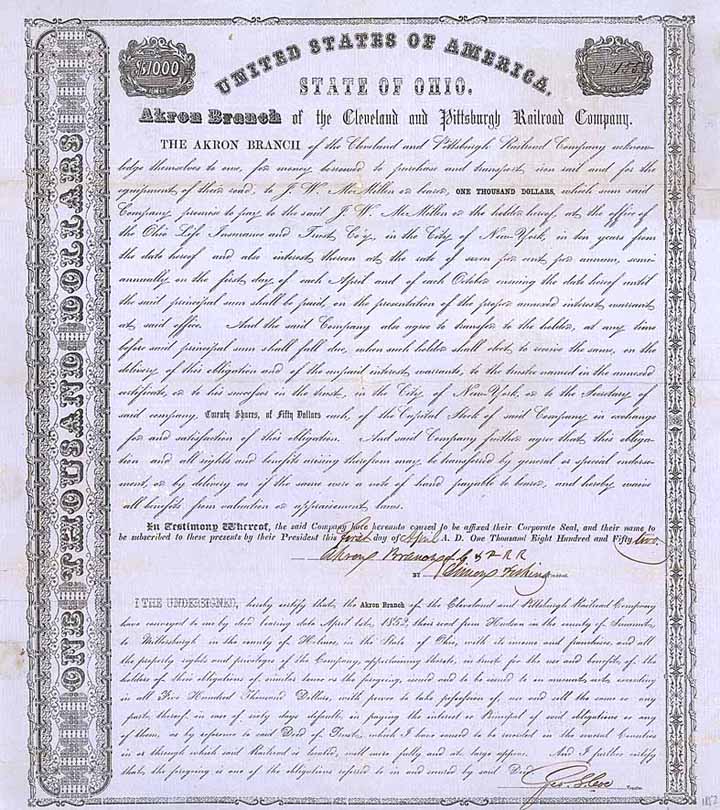 $1000
UNITED STATES OF AMERICA.
No. 155
STATE OF OHIO.
Akron Branch of the Cleveland and Pittsburgh Railroad Company.
ONE THOUSAND DOLLARS
THE AKRON BRANCH of the Cleveland and Pittsburgh Railroad Company acknow-
ledge themselves to owe, for money borrowed to purchase and transport iron rail and for the
equipment of their road, to J. W. McMillen or bearer, ONE THOUSAND DOLLARS, which sum said
Company promise to pay to the said J. W. McMillen or the holder hereof, at the office of
the Ohio Life Insurance and Trust Co'y. in the City of New-York, in ten years from
the date hereof and also interest thereon at the rate of seven per cent per annum, semi
annually on the first day of each April and of each October ensuing the date hereof until
the said principal sum shall be paid, on the presentation of the proper annexed interest warrant
at said office. And the said Company also agree to transfer to the holder, at any time
before said principal sum shall fall due, when such holder shall elect to receive the same, on the
delivery of this obligation and of the unpaid interest warrants, to the trustee named in the annexed
certificate, or to his successor in the trust, in the City of New-York, or to the Secretary of
said company, Twenty Shares, of Fifty Dollars each, of the Capital Stock of said Company in exchange
for and satisfaction of this obligation. And said Company further agree that this obliga-
tion and all rights and benefits arising therefrom may be transferred by general or special endorse-
ment, or by delivery as if the same were a note of hand payable to bearer, and hereby waive
all benefits from valuation or appraisement laws.
In Testimony Whereof, the said Company have hereunto caused to be affixed their Corporate Seal, and their name to
be subscribed to these presents by their President this first day of April A. D. One Thousand Eight Hundred and Fifty two.
Akron Branch of C & P R R
BY Simon Perkins
I THE UNDERSIGNED, hereby certify that the Akron Branch of the Cleveland and Pittsburgh Railroad Company
have conveyed to me by deed bearing date April 1st, 1852, their road from Hudson in the county of Summit,
to Millersburgh in the county of Holmes, in the State of Ohio, with its income and franchises, and all
the property rights and privileges of the Company, appertaining thereto, in trust for the use and benefit of the
holders of their obligations of similar tenor as the foregoing, issued and to be issued to an amount not exceeding
in all Five Hundred Thousand Dollars, with power to take possession of, use and sell the same or any
part thereof in case of sixty days default, in paying the interest or Principal of said obligations or any
of them, as by reference to said Deed of Trust, which I have caused to be recorded in the several Counties
in or through which said Railroad is located, will more fully and at large appear. And I further certify
that the foregoing is one of the obligations referred to in and secured by said Deed.
Trustee